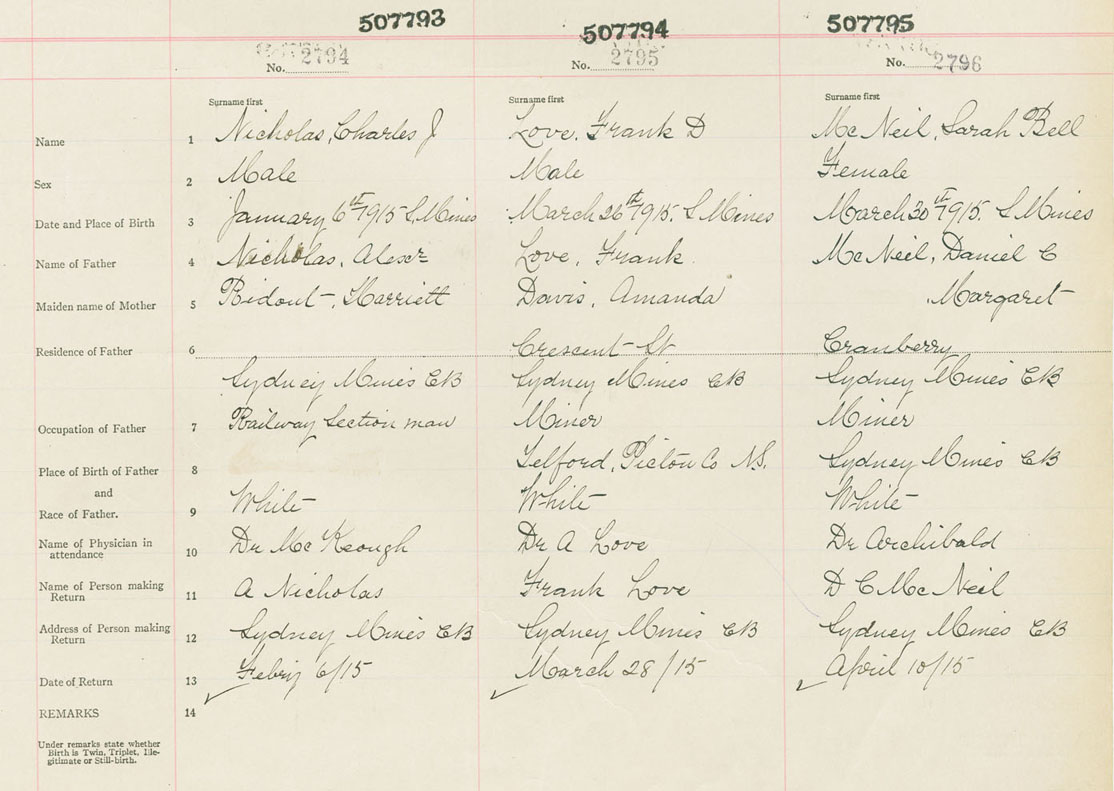 507793 507794 507795
No. 2794 No. 2795 No. 2796
Surname first Surname first Surname first
Name 1 Nicholas, Charles J Love, Frank D McNeil, Sarah Bell
Sex 2 Male Male Female
Date and Place of Birth 3 January 6th 1915 S. Mines March 26th 1915. S Mines March 30th 1915. S Mines
Name of Father 4 Nicholas, Alexr Love, Frank McNeil, Daniel C
Maiden name of Mother 5 Ridout, Harriett Davis, Amanda , Margaret
Residence of Father 6 Crescent St Cranberry
Sydney Mines CB Sydney Mines CB Sydney Mines CB
Occupation of Father 7 Railway Section man Miner Miner
Place of Birth of Father 8 Telford, Pictou Co N.S. Sydney Mines CB
and
Race of Father. 9 White White White
Name of Physician in
attendance 10 Dr McKeough Dr A Love Dr Archibald
Name of Person making
Return 11 A Nicholas Frank Love D C McNeil
Address of Person making
Return 12 Sydney Mines CB Sydney Mines CB Sydney Mines CB
Date of Return 13 6/15 March 28/15 April 10/15
REMARKS 14
Under remarks state whether
Birth is Twin, Triplet, Ille-
gitimate or Still-birth.